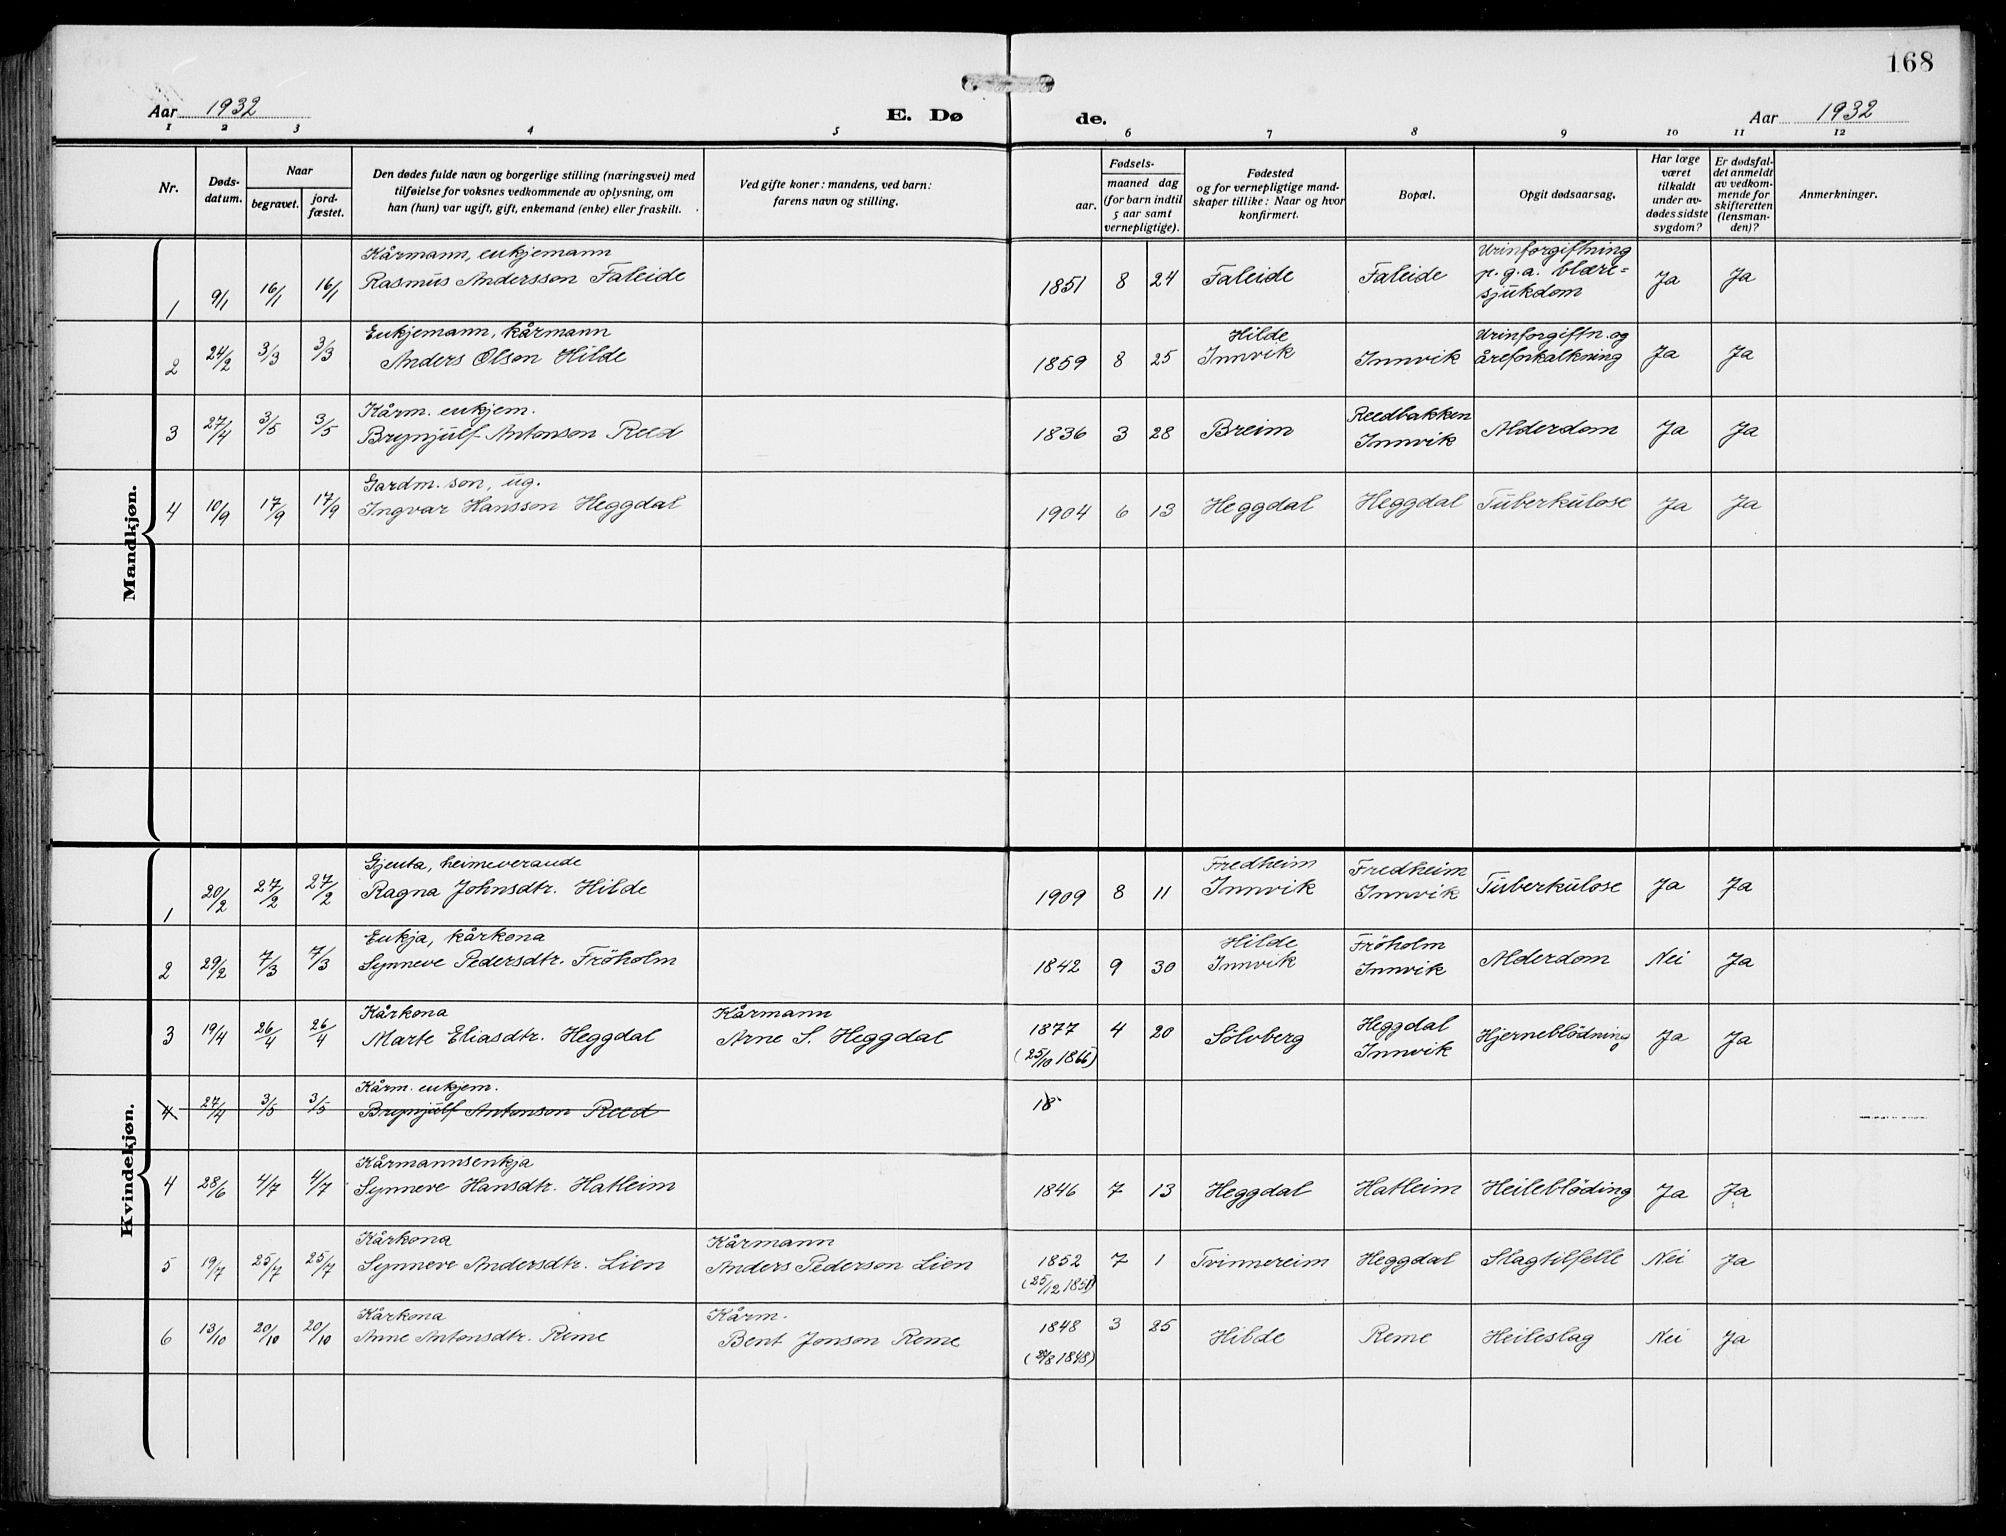 168
Aar 1932
E. Dø
de.
Aar 1932
1 2 3 4 5 6 7 8 9 10 11 12
Nr.
Døds-
datum.
Naar
begravet.
jord-
fæstet.
Den dødes fulde navn og borgerlige stilling (næringsvei) med
tilføielse for voksnes vedkommende av oplysning, om
han (hun) var ugift, gift, enkemand (enke) eller fraskilt.
Ved gifte koner: mandens, ved barn:
farens navn og stilling.
Fødsels-
aar.
maaned dag
(for barn indtil
5 aar samt
vernepligtige).
Fødested
og for vernepligtige mand-
skaper tillike: Naar og hvor
konfirmert.
Bopæl.
Opgit dødsaarsag.
Har læge
været
tilkaldt
under av-
dødes sidste
sygdom?
Er dødsfal-
det anmeldt
av vedkom-
mende for
skifteretten
(lensman-
den)?
Anmerkninger.
Mandkjøn.
Kårmann, enkjemann Urinforgiftning
1 9/1 16/1 16/1 Rasmus Andersson Faleide 1851 8 24 Faleide Faleide p.g.a. blære= Ja Ja
sjukdom
Enkjemann, kårmann Hilde Urinforgiftn. og
2 24/2 3/3 3/3 Anders Olson Hilde 1859 8 25 Innvik Innvik åreforkalkning Ja Ja
Kårm. enkjem. Reedbakken
3 27/4 3/5 3/5 Brynjulf Antonson Reed 1836 3 28 Breim Innvik Alderdom Ja Ja
Gardm. son, ug.
4 10/9 17/9 17/9 Ingvar Hansson Heggdal 1904 6 13 Heggdal Heggdal Tuberkulose Ja Ja
Kvindekjøn.
Gjenta, heimeverande Fredheim Fredheim
1 20/2 27/2 27/2 Ragna Johnsdtr. Hilde 1909 8 11 Innvik Innvik Tuberkulose Ja Ja
Enkja, kårkona Hilde Fröholm
2 29/2 7/3 7/3 Synneve Pedersdtr. Fröholm 1842 9 30 Innvik Innvik Alderdom Nei Ja
Kårkona Kårmann Heggdal
3 19/4 26/4 26/4 Marte Eliasdtr. Heggdal Arne S. Heggdal 1877 4 20 Sölvberg Innvik Hjerneblödning Ja Ja
(25/10 1866)
Kårm. enkjem.
4 27/4 3/5 3/5 Brynjulf Antonson Reed 18
Kårmannsenkja
4 28/6 4/7 4/7 Synneve Hansdtr. Hatleim 1846 7 13 Heggdal Hatleim Heileblöding Ja Ja
Kårkona Kårmann
5 19/7 25/7 25/7 Synneve Andersdtr. Lien Anders Pederson Lien 1852 7 1 Tvinnereim Heggdal Slagtilfelle Nei Ja
(25/12 1851)
Kårkona Kårm.
6 13/10 20/10 20/10 Anne Antonsdtr. Reme Bent Jonson Reme 1848 3 25 Hilde Reme Heileslag Nei Ja
1848)